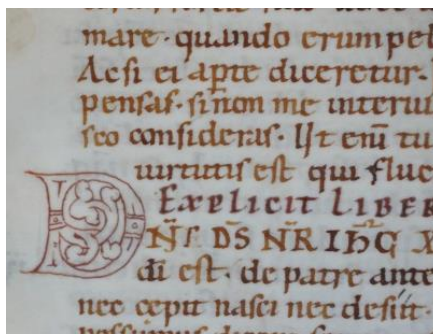 mare · quando erumpe
Ac si ei apte diceretur.
pensas · si non me interui
seo consideras · Ut enī tu
uirtutis est qui fluc
EXPLICIT LIBER
DN̄S D̄S N̄R IH̄C X
dī est · de patre ante
nec cepit nasci nec desiit ·